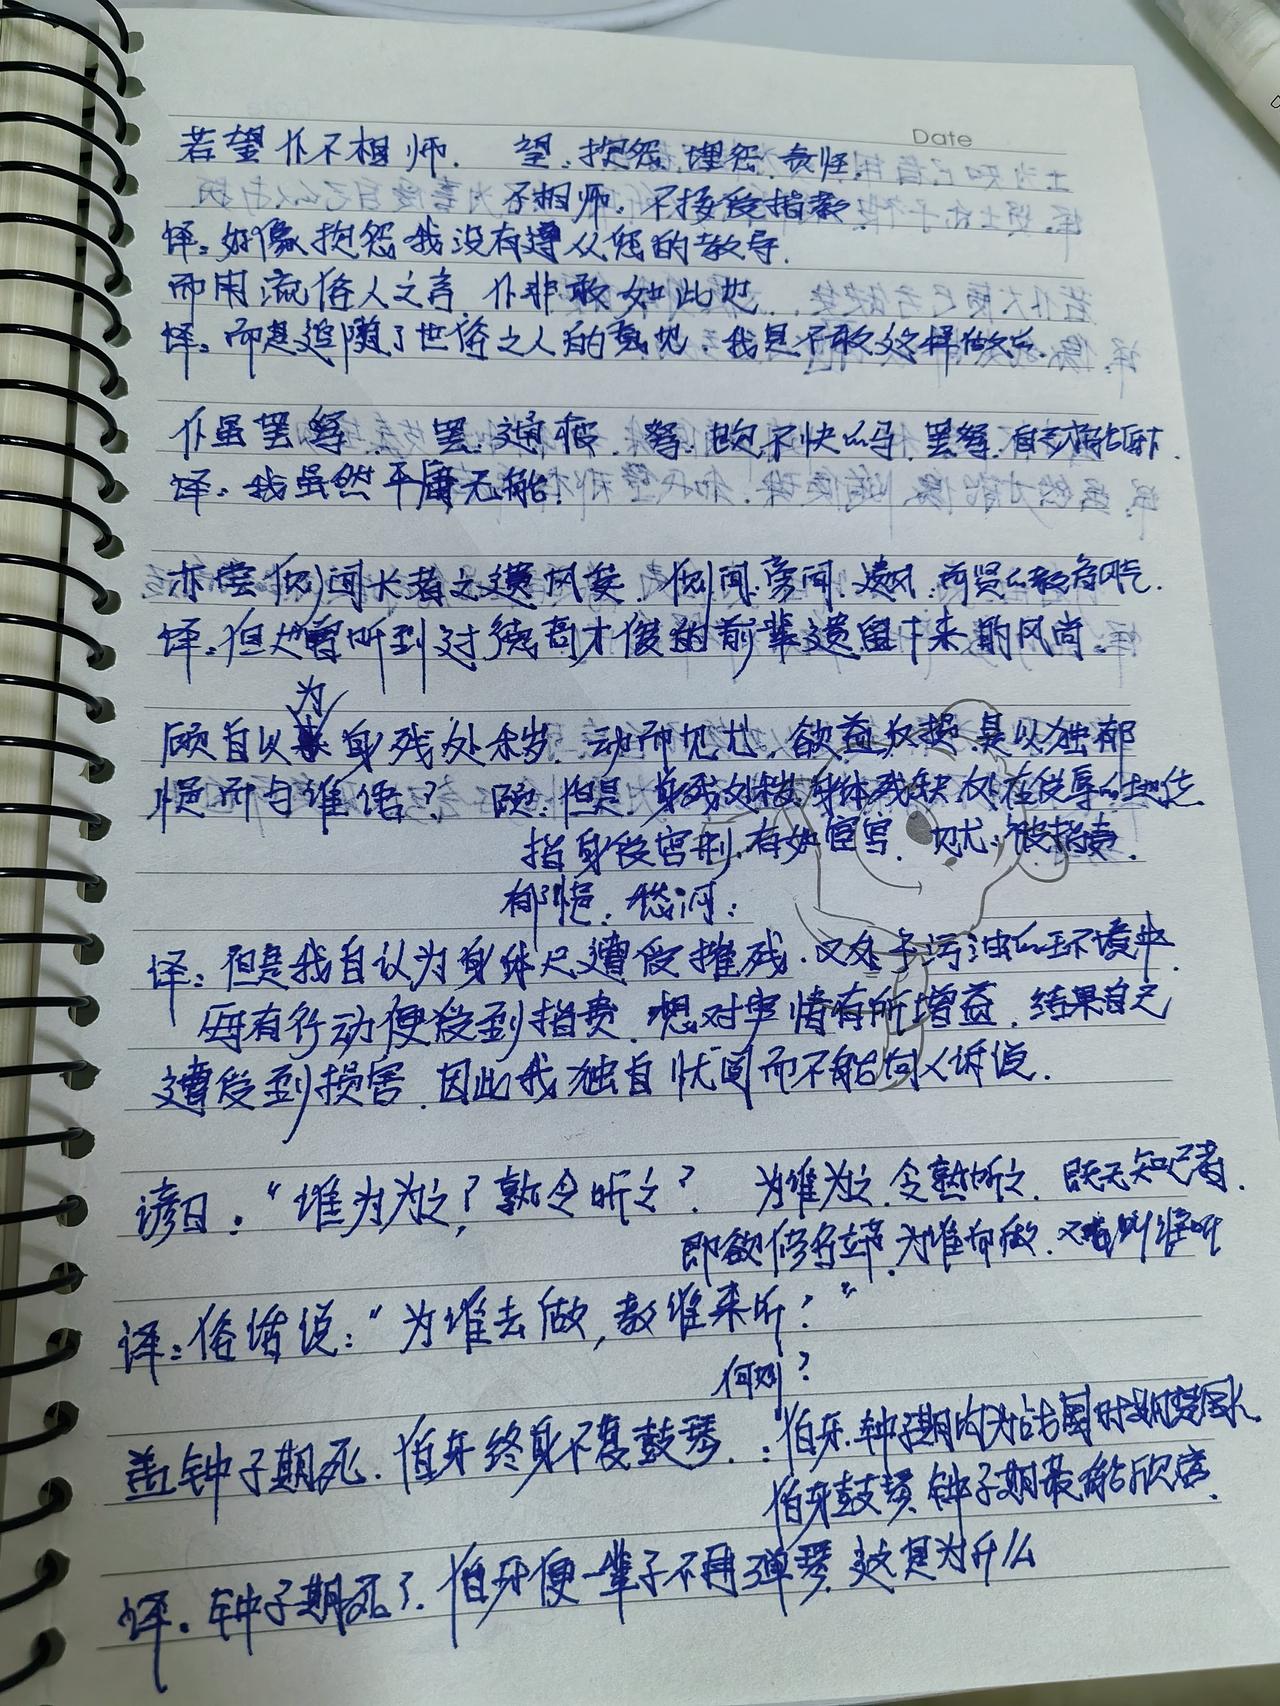 Date
若望仆不相师. 望:抱怨,埋怨,责怪.
不相师:不接受指教
译:好像抱怨我没有遵从您的教导.
而用流俗人之言 仆非敢如此也
译:而是追随了世俗之人的意见,我是不敢这样做的.
仆虽罢驽. 罢:疲. 驽:跑不快的马. 罢驽:自己才能低下.
译:我虽然平庸无能.
亦尝侧闻长者之遗风矣. 侧闻:旁闻. 遗风:前贤的教育风气.
译:但也曾听到过德高才俊的前辈遗留下来的风尚.
为
顾自以身残处秽,动而见尤,欲益反损,是以独郁
悒而与谁语? 顾:但是. 身残处秽:身体残缺,处在役辱的地位
指身役宫刑,有如宦官. 见尤:被指责.
郁悒:愁闷:
译:但是我自认为身体已遭受摧残,又处于污浊的环境中.
每有行动便役到指责,想对事情有所增益,结果自己
遭役到损害.因此我独自忧闷而不能向人诉说.
谚曰:“谁为为之?孰令听之? 为谁为之,令孰听之. 既无知己者.
即欲修名立节.为谁而做.又叫谁听
译:俗话说:“为谁去做,教谁来听?”
何则?
盖钟子期死.伯牙终身不复鼓琴. :伯牙.钟子期均为战国时期楚国人.
伯牙鼓琴 钟子期最能欣赏.
译:钟子期死了.伯牙便一辈子不再弹琴.这是为什么